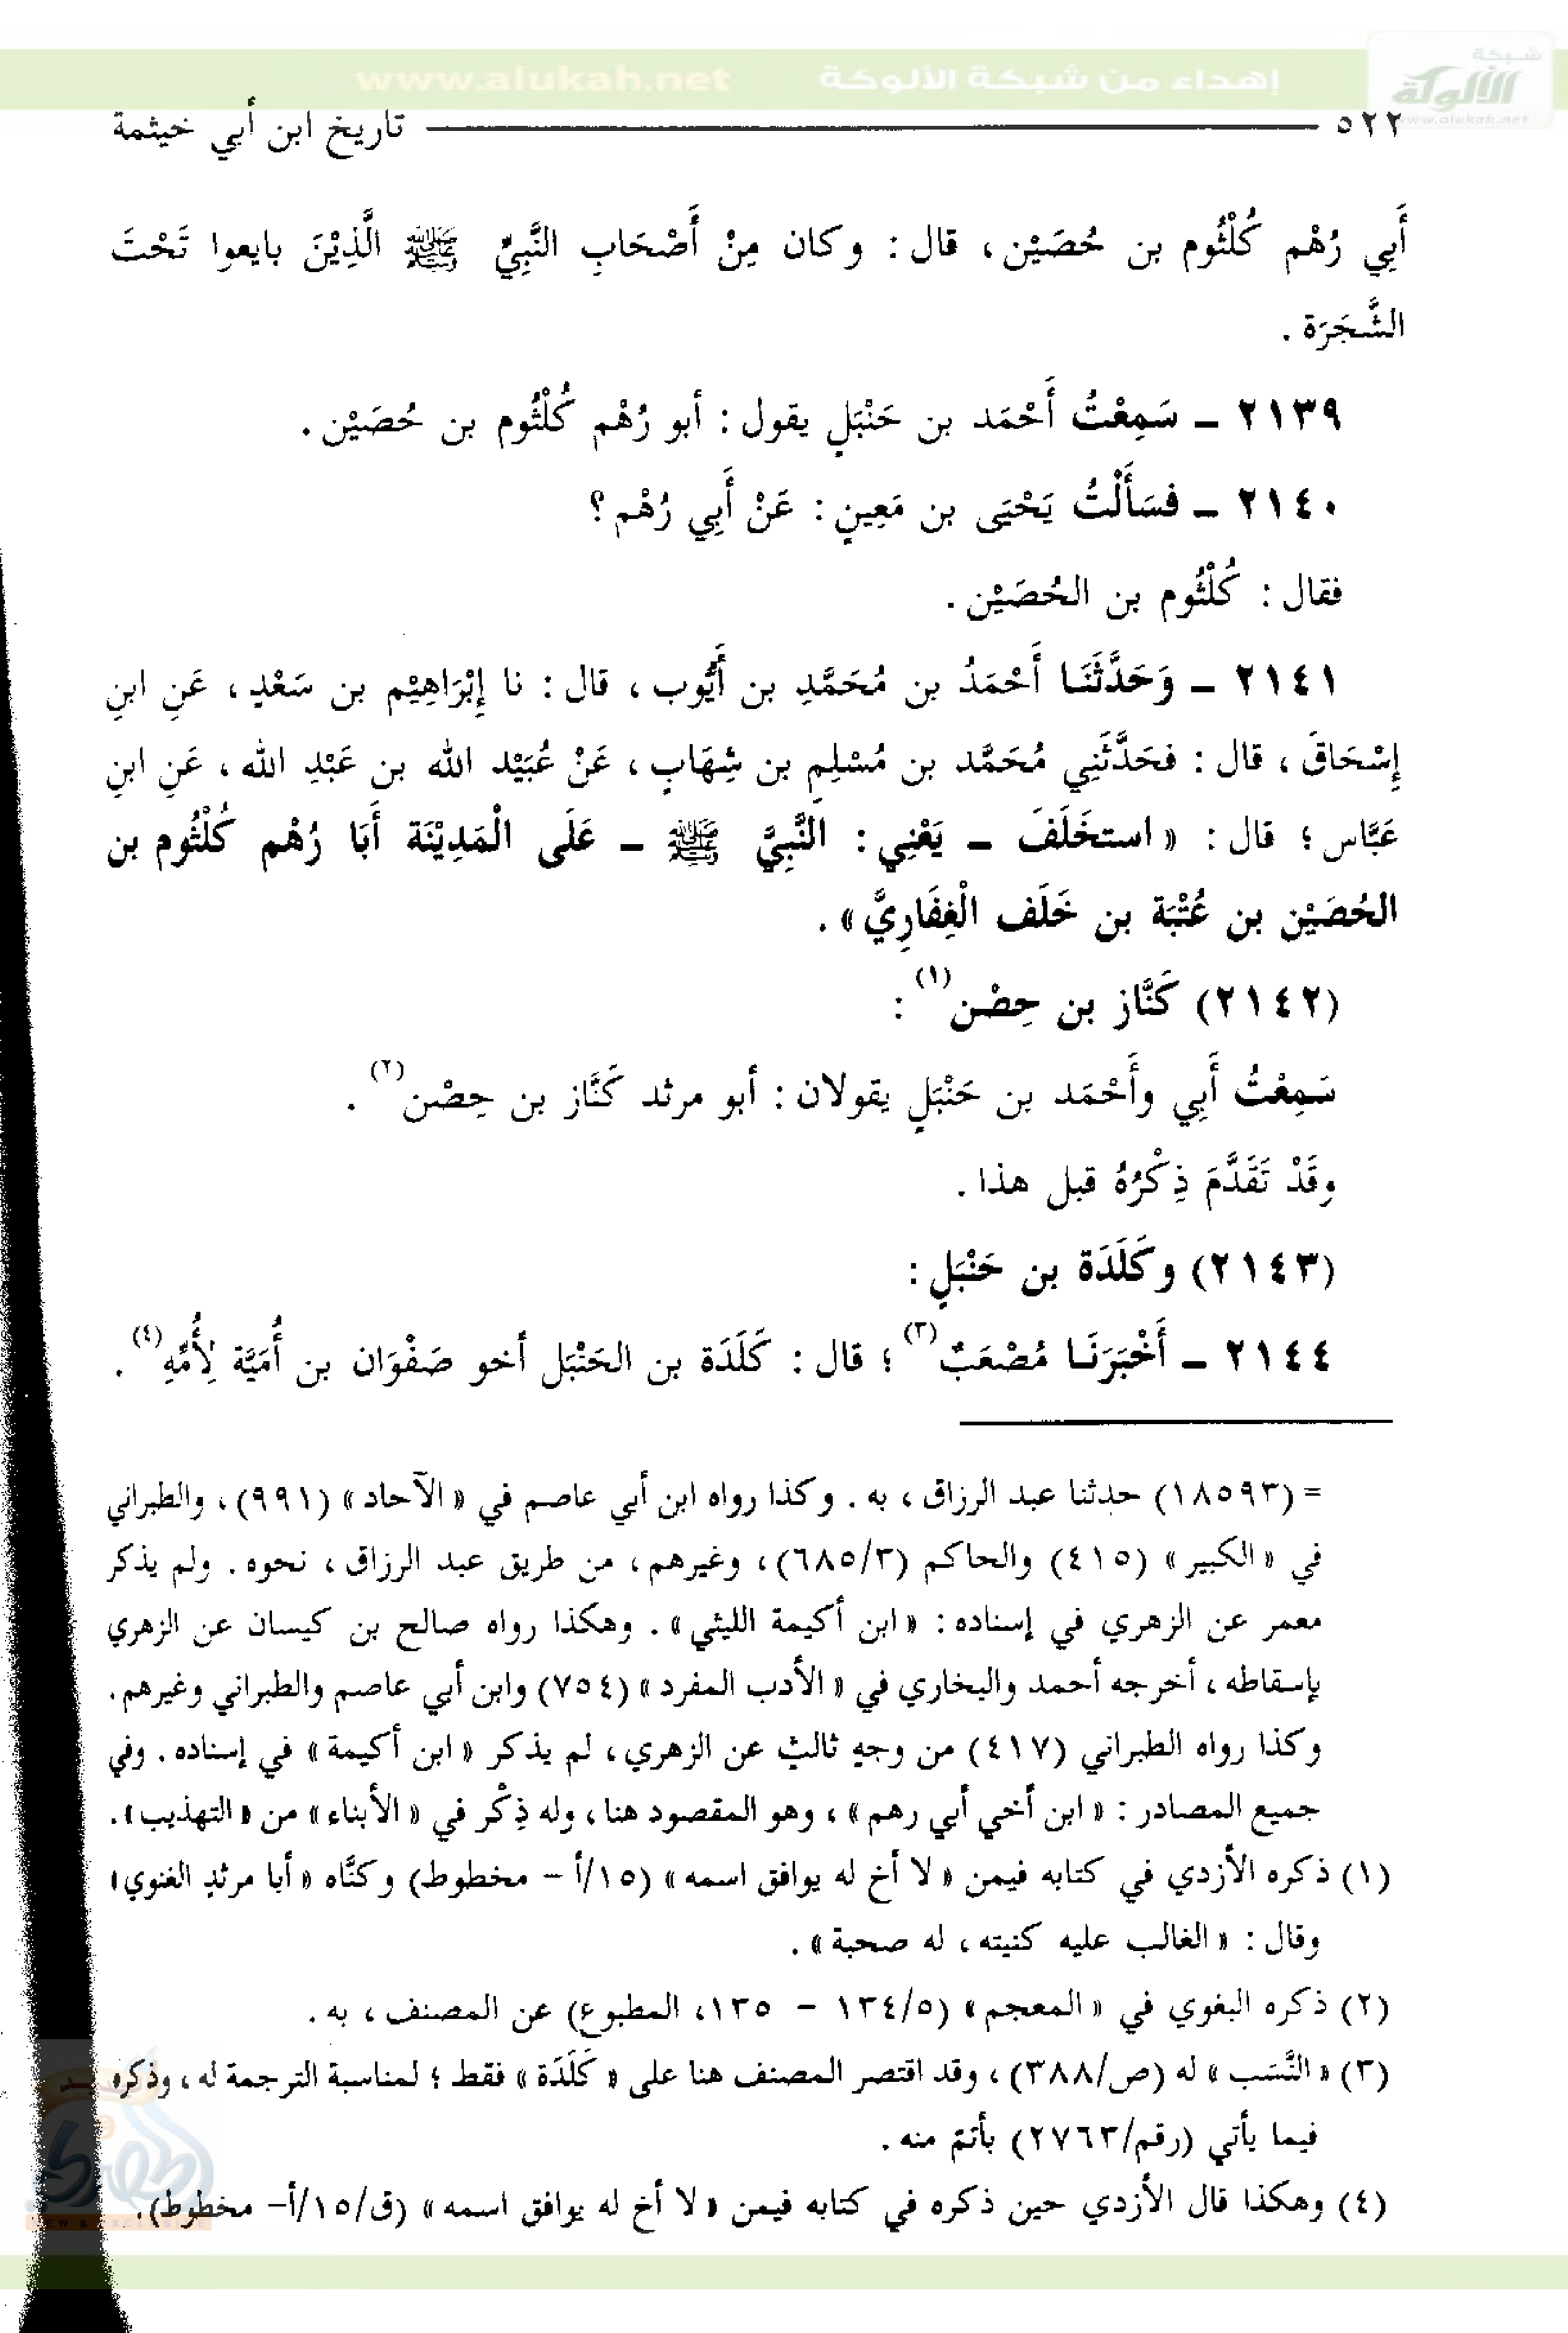 شبكة
الألوكة
www.alukah.net
www.alukah.net إهداء من شبكة الألوكة
٥٢٢ تاريخ ابن أبي خيثمة
أَبِي رُهْم كُلْثُوم بن حُصَيْن، قال: وكان مِنْ أَصْحَابِ النَّبِيِّ ﷺ الَّذِيْنَ بايعوا تَحْتَ
الشَّجَرَة.
٢١٣٩ - سَمِعْتُ أَحْمَد بن حَنْبَلٍ يقول: أبو رُهْم كُلْثُوم بن حُصَيْن.
٢١٤٠ - فسَأَلْتُ يَحْيَى بن مَعِينٍ: عَنْ أَبِي رُهْم؟
فقال: كُلْثُوم بن الحُصَيْن.
٢١٤١ - وَحَدَّثَنَا أَحْمَدُ بن مُحَمَّدِ بن أَيُّوب، قال: نا إِبْرَاهِيْم بن سَعْدٍ، عَنِ ابنِ
إِسْحَاقَ، قال: فحَدَّثَنِي مُحَمَّد بن مُسْلِمِ بن شِهَابٍ، عَنْ عُبَيْد الله بن عَبْدِ الله، عَنِ ابنِ
عَبَّاس؛ قال: «استخَلَفَ - يَعْنِي: النَّبِيَّ ﷺ - عَلَى الْمَدِيْنَة أَبَا رُهْم كُلْثُوم بن
الحُصَيْن بن عُتْبَة بن خَلَف الْغِفَارِيَّ».
(٢١٤٢) كَنَّاز بن حِصْن(١):
سَمِعْتُ أَبِي وأَحْمَد بن حَنْبَلٍ يقولان: أبو مرثد كَنَّاز بن حِصْن(٢).
وقَدْ تَقَدَّمَ ذِكْرُهُ قبل هذا.
(٢١٤٣) وكَلَدَة بن حَنْبَلٍ:
٢١٤٤ - أَخْبَرَنَا مُصْعَبٌ(٣)؛ قال: كَلَدَة بن الحَنْبَل أخو صَفْوَان بن أُمَيَّة لِأُمِّهِ(٤).
= (١٨٥٩٣) حدثنا عبد الرزاق، به. وكذا رواه ابن أبي عاصم في «الآحاد» (٩٩١)، والطبراني
في «الكبير» (٤١٥) والحاكم (٦٨٥/٣)، وغيرهم، من طريق عبد الرزاق، نحوه. ولم يذكر
معمر عن الزهري في إسناده: «ابن أكيمة الليثي». وهكذا رواه صالح بن كيسان عن الزهري
بإسقاطه، أخرجه أحمد والبخاري في «الأدب المفرد» (٧٥٤) وابن أبي عاصم والطبراني وغيرهم.
وكذا رواه الطبراني (٤١٧) من وجهٍ ثالثٍ عن الزهري، لم يذكر «ابن أكيمة» في إسناده. وفي
جميع المصادر: «ابن أخي أبي رهم»، وهو المقصود هنا، وله ذِكْر في «الأبناء» من «التهذيب».
(١) ذكره الأزدي في كتابه فيمن «لا أخ له يوافق اسمه» (١٥/أ - مخطوط) وكنَّاه «أبا مرثدٍ الغنوي»
وقال: «الغالب عليه كنيته، له صحبة».
(٢) ذكره البغوي في «المعجم» (١٣٤/٥ - ١٣٥، المطبوع) عن المصنف، به.
(٣) «النَّسَب» له (ص/٣٨٨)، وقد اقتصر المصنف هنا على «كَلَدَة» فقط؛ لمناسبة الترجمة له، وذكره
فيما يأتي (رقم/٢٧٦٣) بأتمّ منه.
(٤) وهكذا قال الأزدي حين ذكره في كتابه فيمن «لا أخ له يوافق اسمه» (ق/١٥/أ- مخطوط).